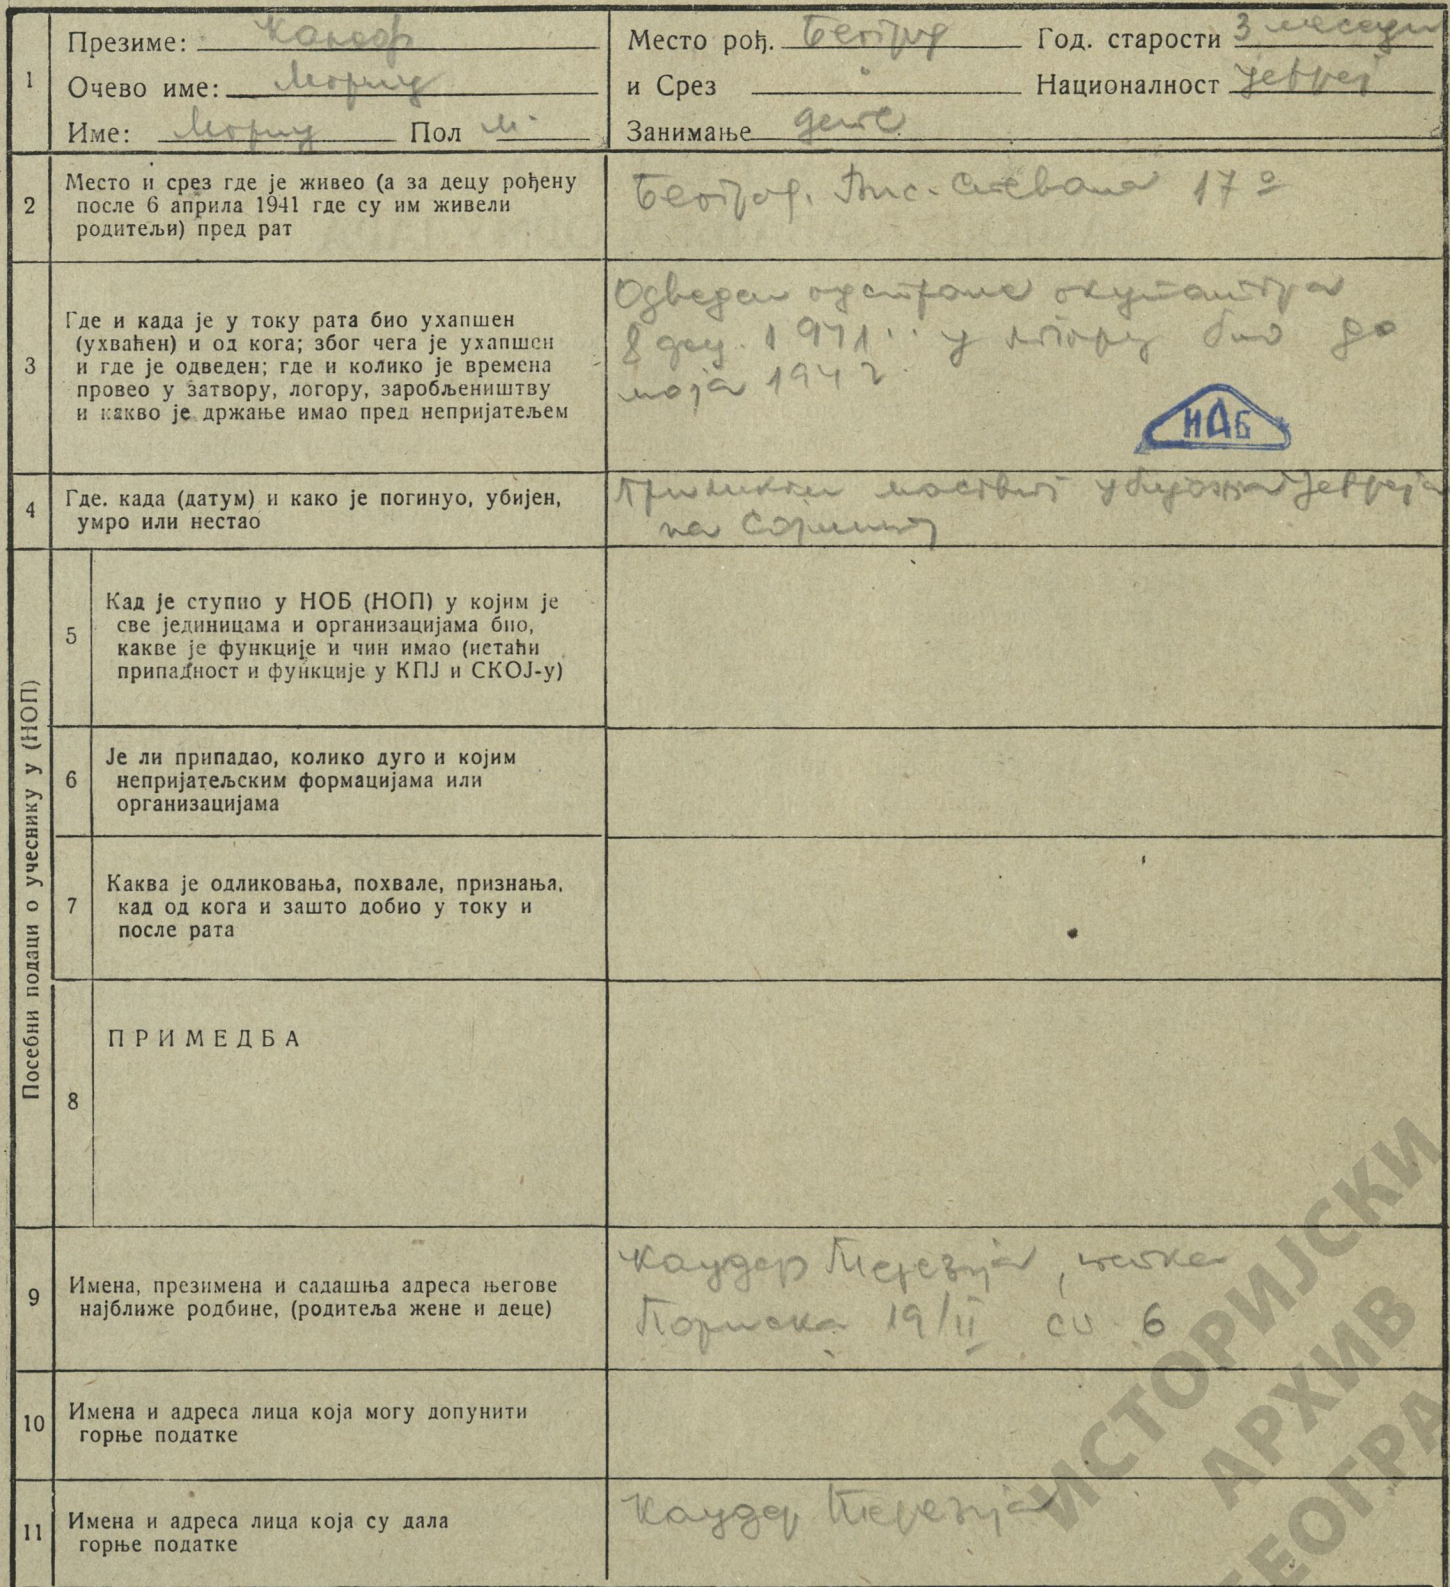 1
Презиме: Конфорти
Очево име: Мориц
Име: Мориц Пол м.
Место рођ. Београд Год. старости 3 месеци
и Срез " Националност Јевреј
Занимање дете
2
Место и срез где је живео (а за децу рођену
после 6 априла 1941 где су им живели
родитељи) пред рат
Београд. Вис. Стевана 17 а
3
Где и када је у току рата био ухапшен
(ухваћен) и од кога; због чега је ухапшен
и где је одведен; где и колико је времена
провео у затвору, логору, заробљеништву
и какво је држање имао пред непријатељем
Одведен од стране окупатора
8 дец. 1941. у логору био до
маја 1942
ИАБ
4
Где. када (датум) и како је погинуо, убијен,
умро или нестао
Приликом масовног убијања Јевреја
на Сајмишту
Посебни подаци о учеснику у (НОП)
5
Кад је ступио у НОБ (НОП) у којим је
све јединицама и организацијама био,
какве је функције и чин имао (истаћи
припадност и функције у КПЈ и СКОЈ-у)
6
Је ли припадао, колико дуго и којим
непријатељским формацијама или
организацијама
7
Каква је одликовања, похвале, признања,
кад од кога и зашто добио у току и
после рата
8
ПРИМЕДБА
9
Имена, презимена и садашња адреса његове
најближе родбине, (родитеља жене и деце)
Каудер Терезија, тетка
19/II 6
10
Имена и адреса лица која могу допунити
горње податке
11
Имена и адреса лица која су дала
горње податке
Каудер Терезија
ИСТОРИЈСКИ
АРХИВ
БЕОГРА